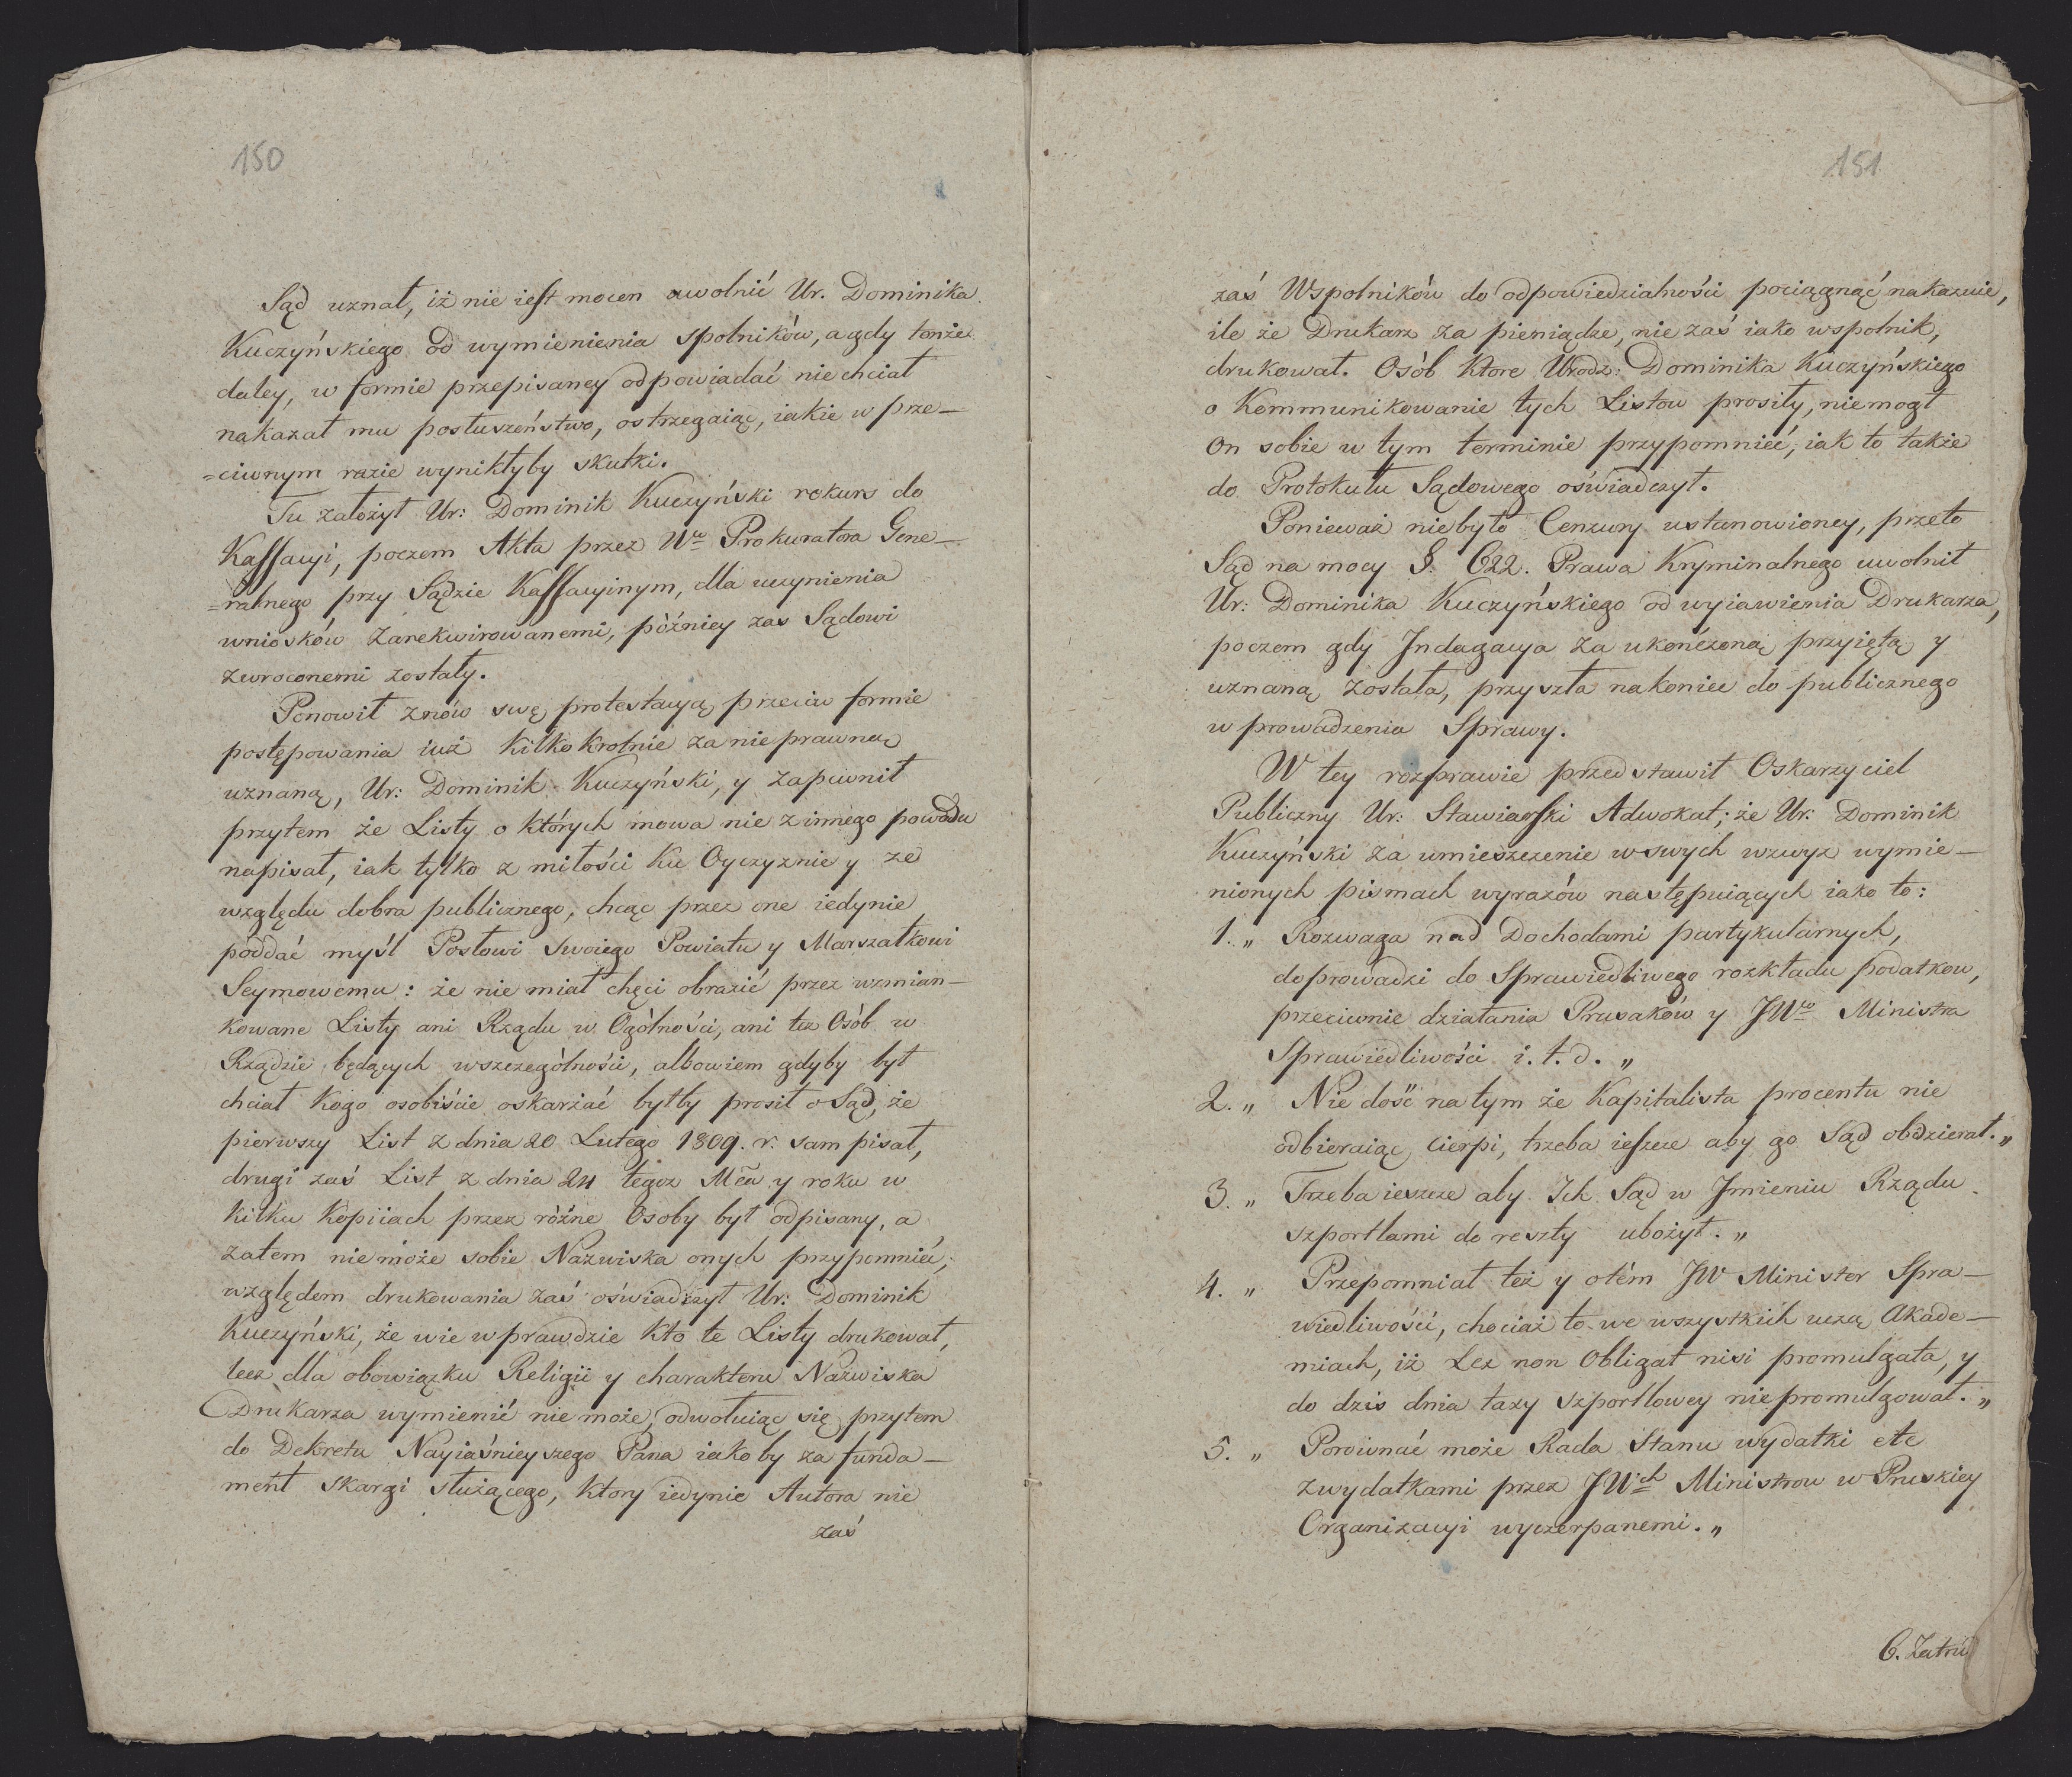 150
Sąd uznał, iż nie iest mocen uwolnić Ur. Dominika
Kuczyńskiego od wymienienia spolników, a gdy tenże
daley, w formie przepisaney odpowiadać niechciał
nakazał mu posłuszeństwo, ostrzegaiąc, iakie w prze—
=ciwnym razie wynikłyby skutki.
Tu założył Ur: Dominik Kuczyński rekurs do
Kassacyi, poczem Akta przez Wgo Prokuratora Gene—
=ralnego przy Sądzie Kassacyinym, dla uczynienia
wniosków zarekwirowanemi, późniey zas Sądowi
zwroconemi zostały.
Ponowił znów swę protestacyą przeciw formie
postępowania iuż kilkokrotnie za nieprawną
uznaną, Ur: Dominik Kuczyński, y zapewnił
przytem że Listy o których mowa nie z innego powodu
napisał, iak tylko z miłości ku Oyczyznie y ze
względu dobra publicznego, chcąc przez one iedynie
poddać myśl Posłowi swoiego Powiatu y Marszałkowi
Seymowemu: że nie miał chęci obrazić przez wzmian—
kowane Listy ani Rządu w Ogólności, ani tez Osób w
Rządzie będących wszczególności, albowiem gdyby był
chciał kogo osobiście oskarżać byłby prosił o Sąd, że
pierwszy List z dnia 20 Lutego 1809. r. sam pisał,
drugi zaś List z dnia 24 tegoz Mca y roku w
kilku kopiiach przez różne Osoby był odpisany, a
zatem niemoże sobie Nazwiska onych przypomnieć;
względem drukowania zaś oświadczył Ur: Dominik
Kuczyński, że wie wprawdzie kto te Listy drukował,
lecz dla obowiązku Religii y charakteru Nazwiska
Drukarza wymienić nie może, odwołuiąc się przytem
do Dekretu Nayiaśnieyszego Pana iakoby za funda—
ment skargi służącego, ktory iedynie Autora nie
zaś
151
zaś Wspolników do odpowiedzialności pociągnąć nakazuie,
ile że Drukarz za pieniądze, nie zaś iako wspolnik,
drukował. Osób ktore Urodz: Dominika Kuczyńskiego
o kommunikowanie tych Listow prosiły, niemogł
on sobie w tym terminie przypomnieć, iak to także
do Protokułu Sądowego oświadczył.
Ponieważ niebyło Cenzury ustanowioney, przeto
Sąd na mocy §. 622. Prawa Kryminalnego uwolnił
Ur: Dominika Kuczyńskiego od wyiawienia Drukarza,
poczem gdy Indagacya za ukończoną przyiętą y
uznaną została, przyszła nakoniec do publicznego
wprowadzenia Sprawy.
W tey rozprawie przedstawił Oskarzyciel
Publiczny Ur: Stawiarski Adwokat; że Ur: Dominik
Kuczyński za umieszczenie wswych wzwyz wymie—
nionych pismach wyrazów następuiących iako to:
1. „ Rozwaga nad Dochodami partykularnych,
doprowadzi do Sprawiedliwego rozkładu podatkow,
przeciwnie działania Prusaków y JWgo Ministra
Sprawiedliwości i. t. d. „
2. „ Nie dość na tym że Kapitalista procentu nie
odbieraiąc cierpi, trzeba ieszcze aby go Sąd obdzierał. „
3. „ Trzeba ieszcze aby Ich Sąd w Imieniu Rządu
szportlami do reszty ubożył. „
4. „ Przepomniał też y otém JW Minister Spra—
wiedliwości, chociaż to we wszystkich uczą Akade—
miach, iż Lex non Obligat nisi promulgata, y
do dzis dnia taxy szportlowey niepromulgował. „
5. „ Porównać może Rada Stanu wydatki etc
zwydatkami przez JWch Ministrow w Pruskiey
Organizacyi wyczerpanemi. „
6. Zatru